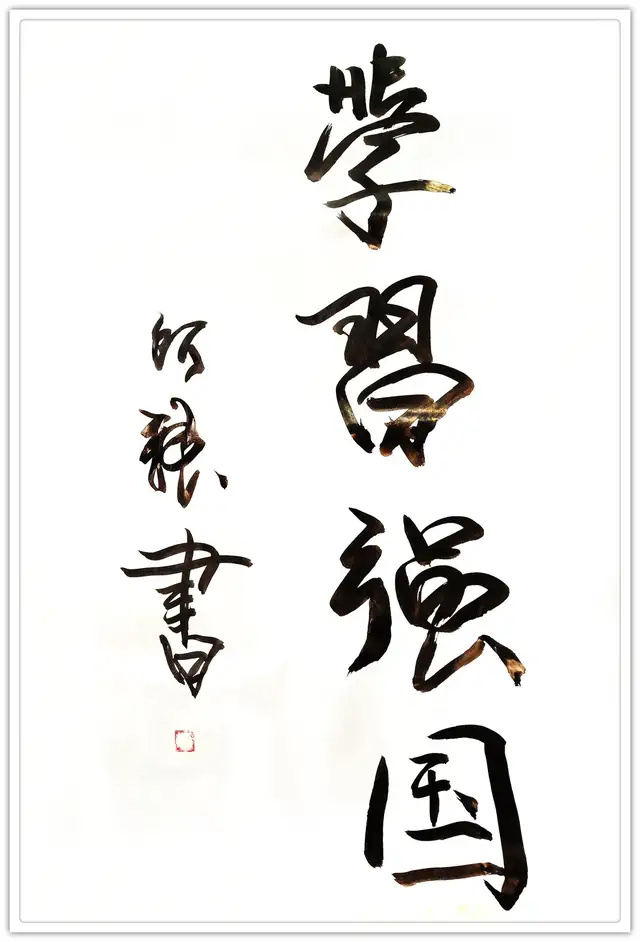 學習强国
書